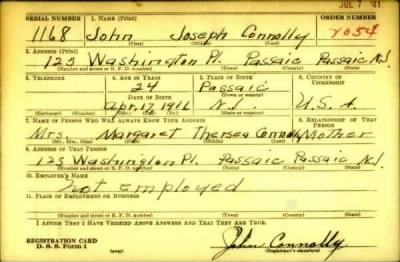 JUL 7 '41
SERIAL NUMBER 1. NAME (Print) ORDER NUMBER
1168 John Joseph Connolly 2054
(First) (Middle) (Last)
2. ADDRESS (Print)
125 Washington Pl. Passaic Passaic N.J.
(Number and street or R. F. D. number) (Town) (County) (State)
3. TELEPHONE 4. AGE IN YEARS 5. PLACE OF BIRTH 6. COUNTRY OF CITIZENSHIP
24 Passaic
DATE OF BIRTH (Town or county)
Apr. 17, 1916 N.J. U.S.A.
(Exchange) (No.) (Mo.) (Day) (Yr.) (State or country)
7. NAME OF PERSON WHO WILL ALWAYS KNOW YOUR ADDRESS 8. RELATIONSHIP OF THAT PERSON
Mrs. Margaret Thersea Connolly Mother
(Mr., Mrs., Miss) (First) (Middle) (Last)
9. ADDRESS OF THAT PERSON
125 Washington Pl. Passaic Passaic N.J.
(Number and street or R. F. D. number) (Town) (County) (State)
10. EMPLOYER'S NAME
Not Employed
11. PLACE OF EMPLOYMENT OR BUSINESS
(Number and street or R. F. D. number) (Town) (County) (State)
I AFFIRM THAT I HAVE VERIFIED ABOVE ANSWERS AND THAT THEY ARE TRUE.
REGISTRATION CARD
D. S. S. Form 1 John Connolly
(Registrant's signature)